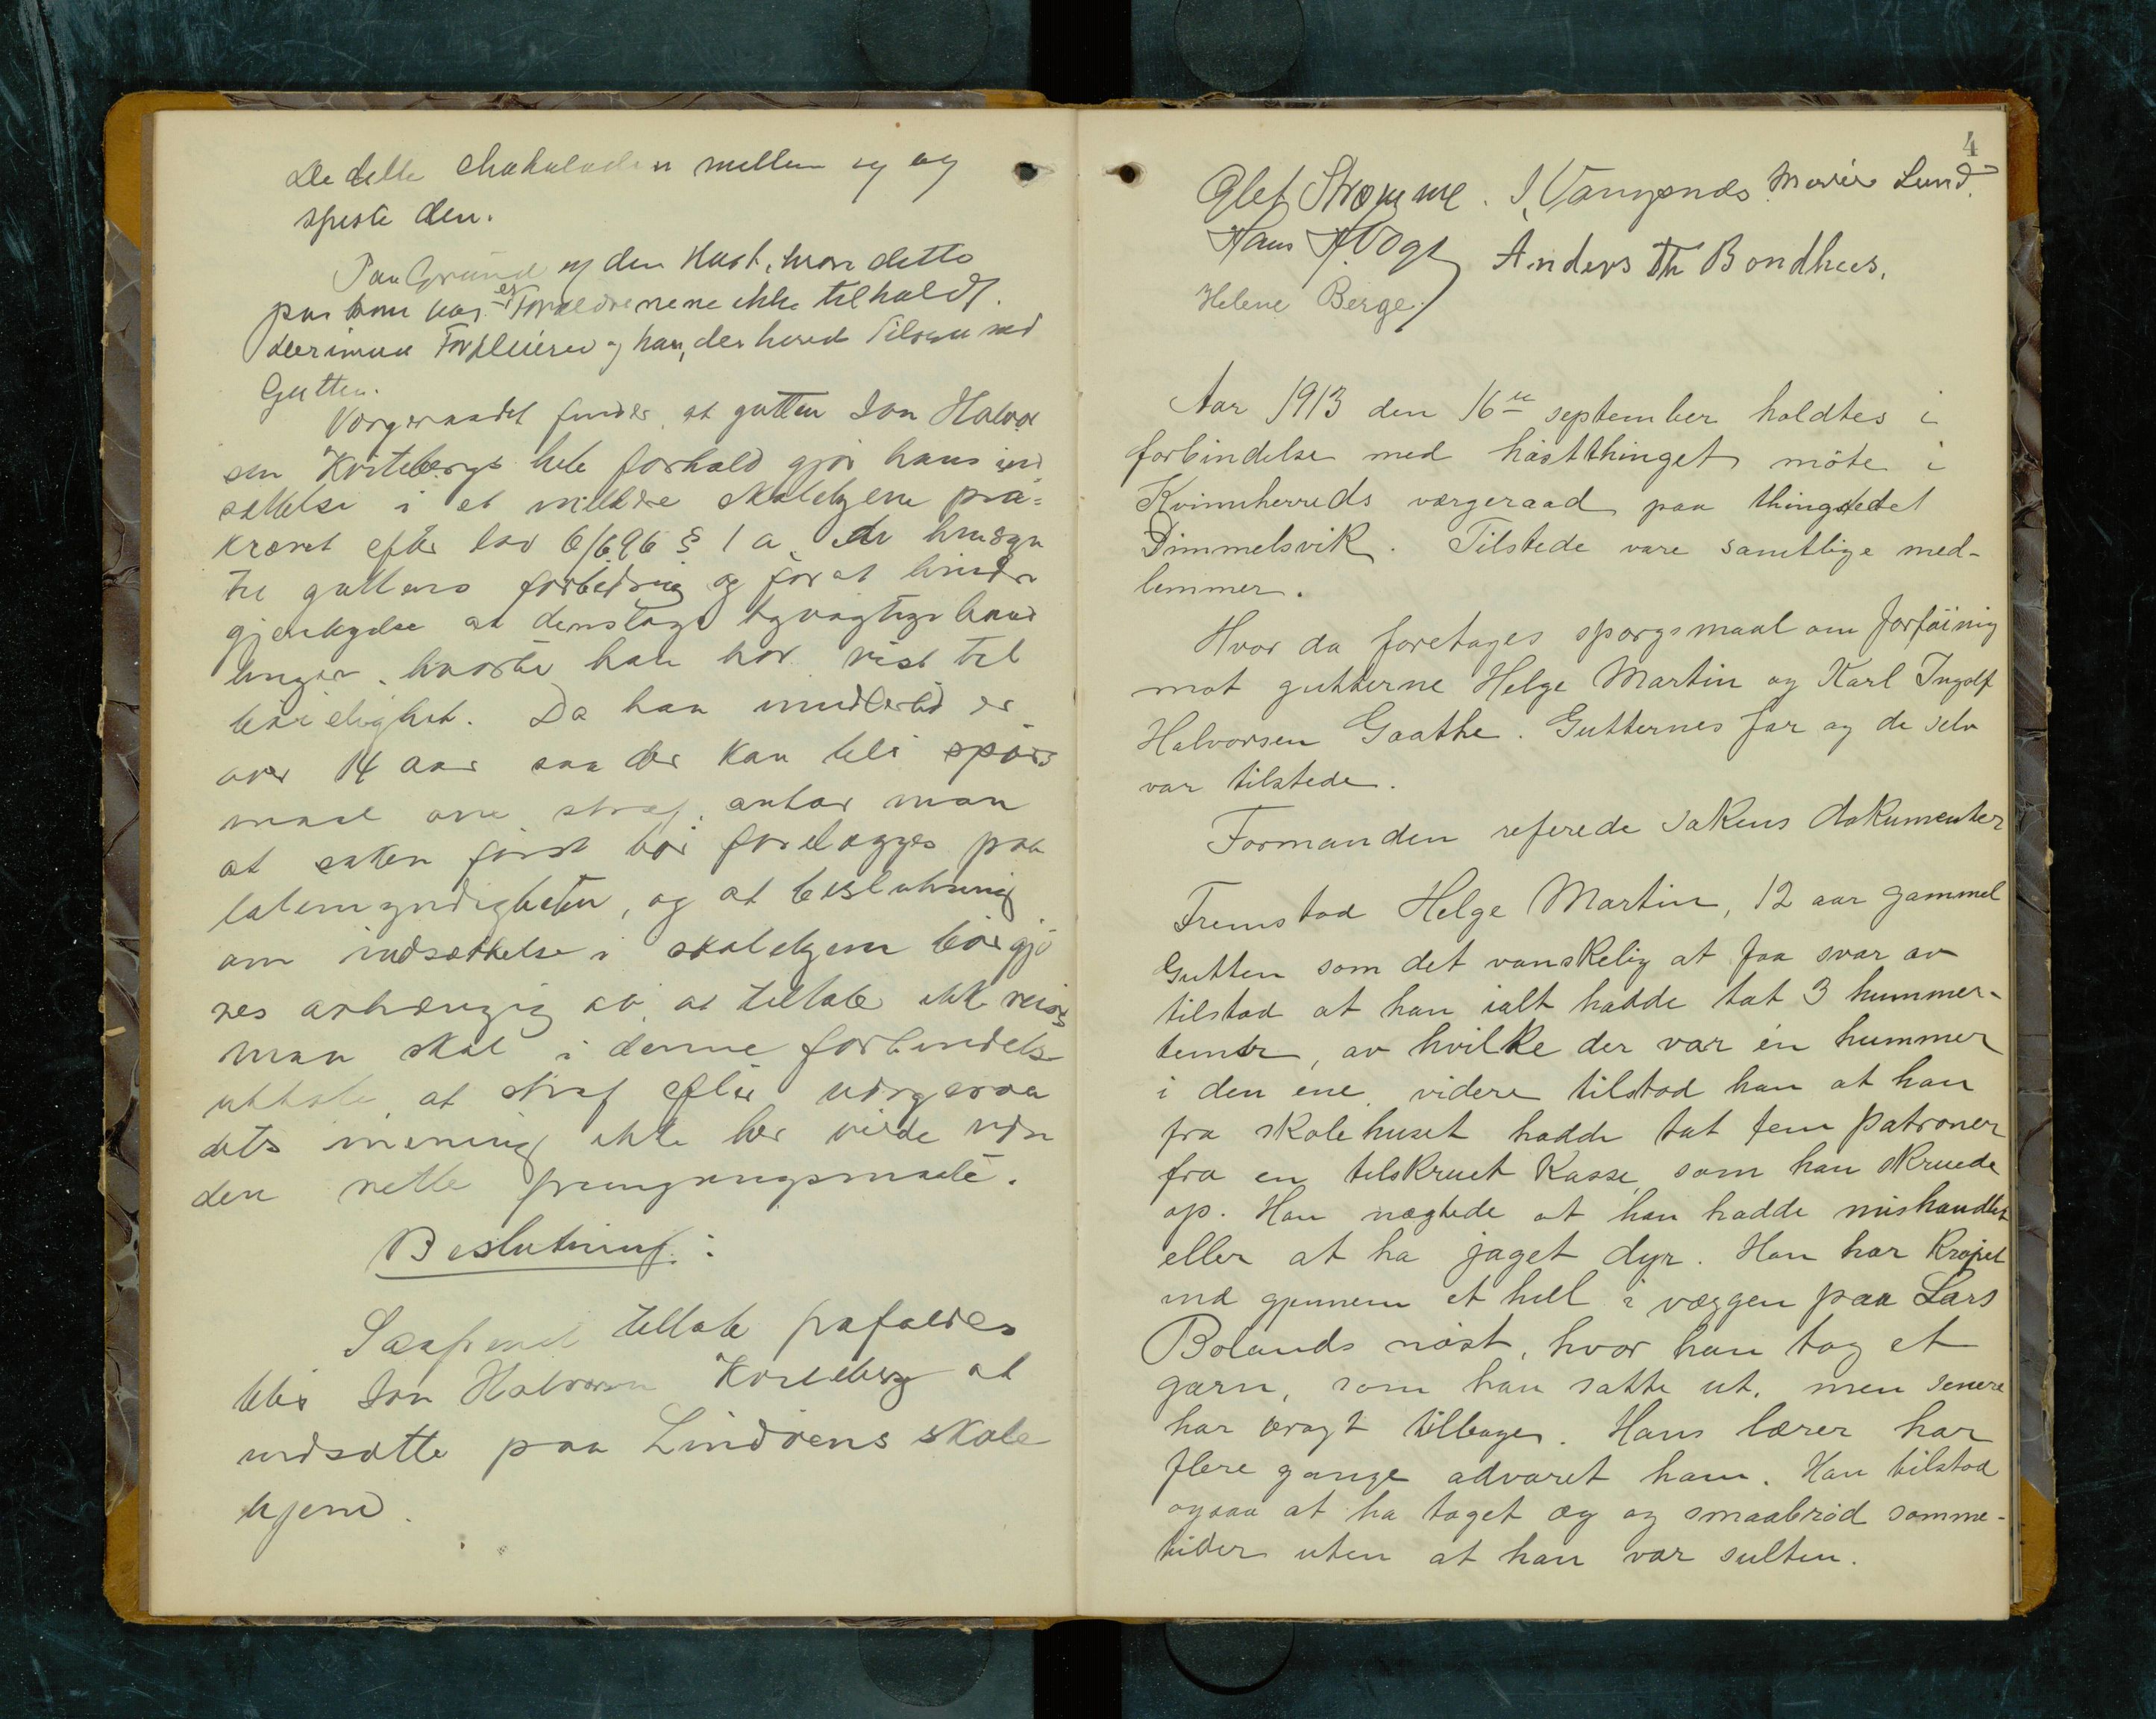 De delte chokoladen mellem sig og
spiste den.
Paa Grund af den Hast, hvor dette
paa kom var er Forældrenene ikke tilholdt.
derimod Forpleieren og han, der havde Tilsyn med
Gutten.
Værgeraadet finder, at gutten Jon Halvor
sen Kortebergs hele forhold gjör hans ind
sættelse i et mildere skolehjem paa=
krævet efter lov 6/6 96 § 1 a. av hensyn
til guttens forbedring og for at hindre
gjentagelse av denslags tyvagtige hand
linger, hvortil han har vist til
böielighet. Da han imidlertid er
over 14 aar saa der kan bli spörs
maal om straf, antar man
at saken först bör forelægges paa
talemyndigheten, og at beslutning
om indsættelse i skolehjem bör gjö
res avhængig av, at tiltale ikke reises
man skal i denne forbindelse
uttale, at straf efter værgeraa
dets mening ikke her vilde være
den rette fremgangsmaate.
Beslutning:
Saafremt tiltale frafaldes
blir Jon Halvorsen Korteberg at
indsætte paa Lindöens skole
hjem.
4
Olet Strømme. S. Vangsnes Marie Lund.
Hans H. Vogt Anders Th Bondhus.
Helene Berge.
Aar 1913 den 16de september holdtes i
forbindelse med höstthinget möte i
Kvinnherreds værgeraad paa thingstedet
Dimmelsvik. Tilstede vare samtlige med-
lemmer.
Hvor da foretages sporgsmaal om forföining
mot gutterne Helge Martin og Karl Ingolf
Halvorsen Gaathe. Gutternes far og de selv
var tilstede.
Formanden referede sakens dokumenter
Fremstod Helge Martin, 12 aar gammel
Gutten som det vanskelig at faa svar av
tilstod at han ialt hadde tat 3 hummer-
teiner, av hvilke der var én hummer
i den ene, videre tilstod han at han
fra skolehuset hadde tat fem patroner
fra en tilskruet kasse, som han skruede
op. Han nægtede at han hadde mishandlet
eller at ha jaget dyr. Han har krøpet
ind gjennem et hull i væggen paa Lars
Bolands nöst, hvor han tog et
garn, som han satte ut, men senere
har bragt tilbage. Hans lærer har
flere gange advaret ham. Han tilstod
ogsaa at ha taget æg og smaabröd somme-
tider uten at han var sulten.